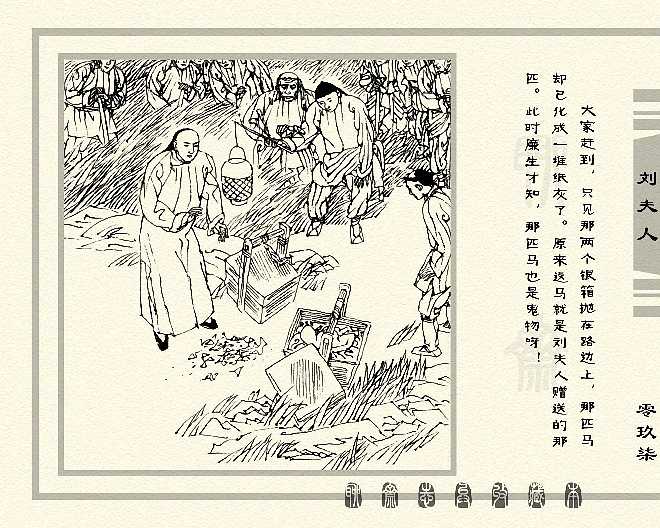 大家赶到，只见那两个银箱抛在路边上，那匹马
却已化成一堆纸灰了。原来这马就是刘夫人赠送的那
匹。此时廉生才知，那匹马也是鬼物呀！
刘夫人
零玖柒